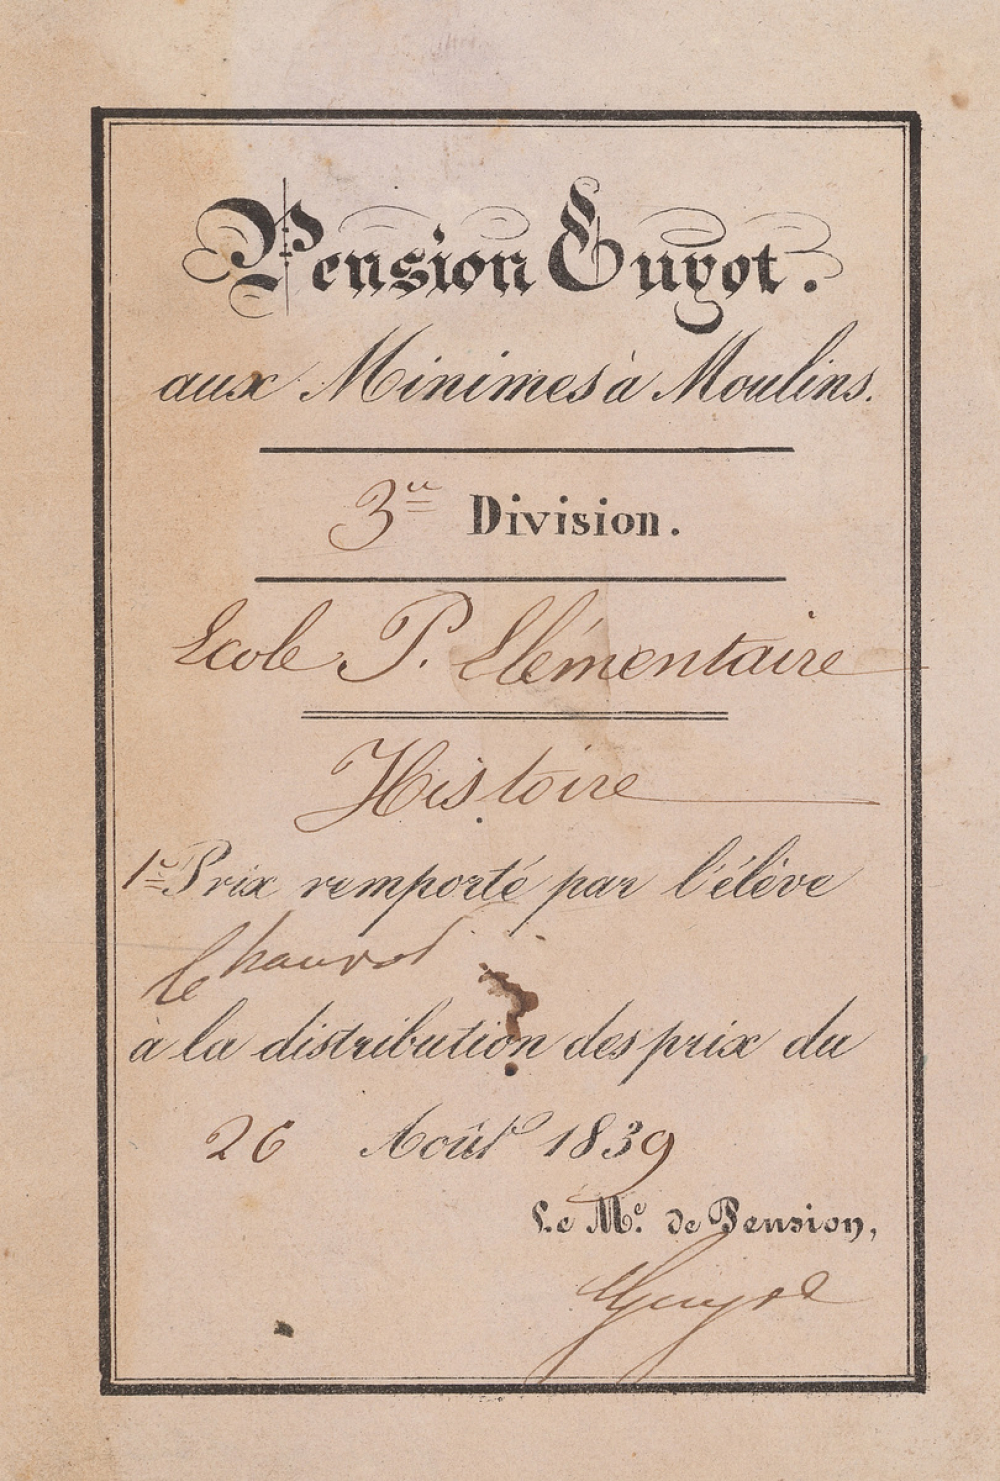 Pension Guyot.
aux Minimes à Moulins.
3e Division.
Ecole P. Elémentaire
Histoire
1er Prix remporté par l'élève
Chauvot
à la distribution des prix du
26 Août 1839
Le Me. de Pension,
Guyot